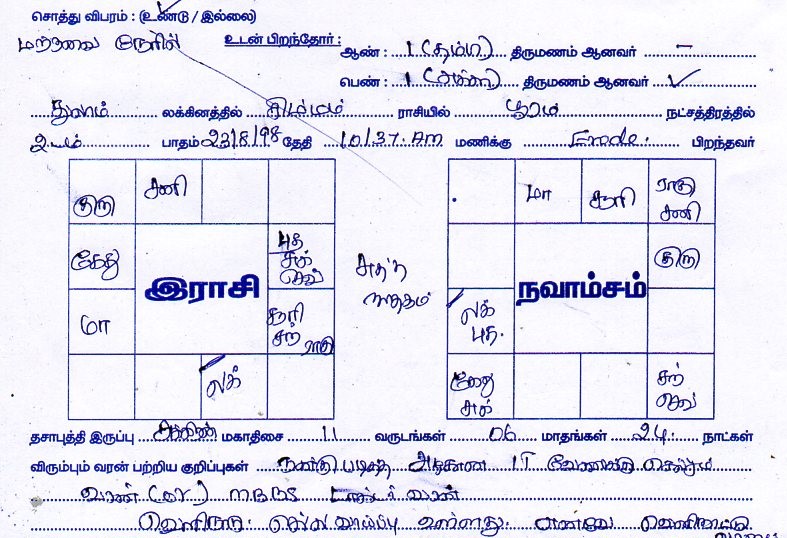 சொத்து விபரம் : (உண்டு / இல்லை)
மற்றவை நேரில் உடன் பிறந்தோர் :
ஆண் : 1 (தம்பி) திருமணம் ஆனவர் –
பெண் : 1 திருமணம் ஆனவர் ✓
துலாம் லக்கினத்தில் சிம்மம் ராசியில் பூரம் நட்சத்திரத்தில்
2ம் பாதம் 23/8/98 தேதி 10/37 AM மணிக்கு Erode. பிறந்தவர்
குரு சனி
கேது புத சுக் செவ்
இராசி
மா சூரி சந் ராகு
லக்
சுத்த ஜாதகம்
மா சூரி ராகு சனி
குரு
நவாம்சம்
லக் புத.
கேது சுக் சந் செவ்
தசாபுத்தி இருப்பு சுக்கிரன் மகாதிசை 11 வருடங்கள் 06 மாதங்கள் 24 நாட்கள்
விரும்பும் வரன் பற்றிய குறிப்புகள் நன்கு படித்த IT வேலைக்கு செல்லும்
வரன் (or) MBBS டாக்டர் வரன்
வெளிநாடு செல்ல வாய்ப்பு உள்ளது. எனவே வெளிநாட்டு